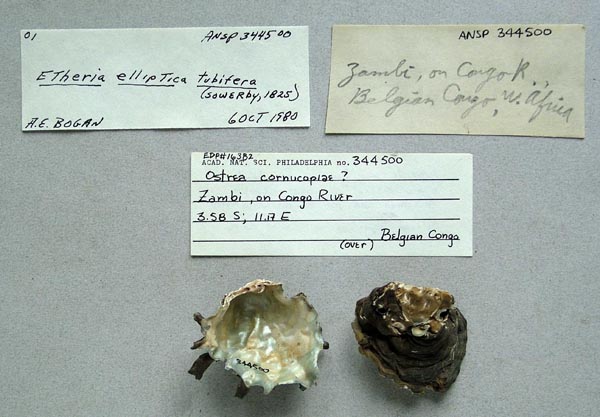 01 ANSP 344500
Etheria elliptica tubifera
(Sowerby, 1825)
A.E. BOGAN 6 OCT 1980
ANSP 344500
Zambi, on Congo R.,
Belgian Congo, W. Africa
EDP# 16382
ACAD. NAT. SCI. PHILADELPHIA NO. 344500
Ostrea cornucopiae ?
Zambi, on Congo River
3.58 S; 11.17 E
Belgian Congo
(over)
344500